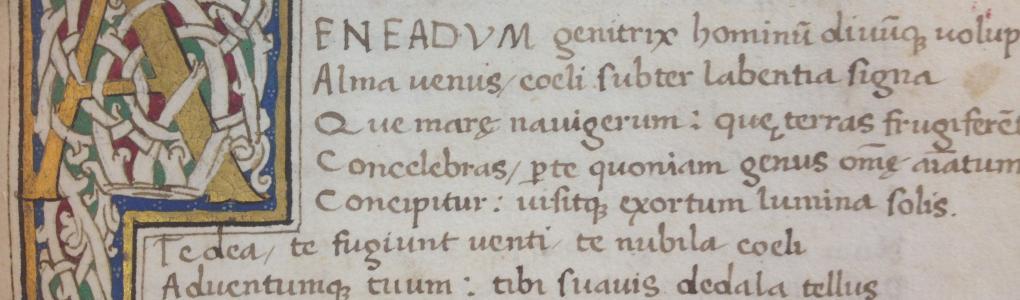 AENEADVM genitrix hominū diuūq̧ uolup
Alma uenus, coeli subter labentia signa
Que marę nauigerum : quę terras frugiferēt
Concelebras, ꝑte quoniam genus omē aīatum
Concipitur : uisitq̧ exortum lumina solis.
Te dea, te fugiunt uenti, te nubila coeli
Aduentumq̧ tuum : tibi suauis dedala tellus